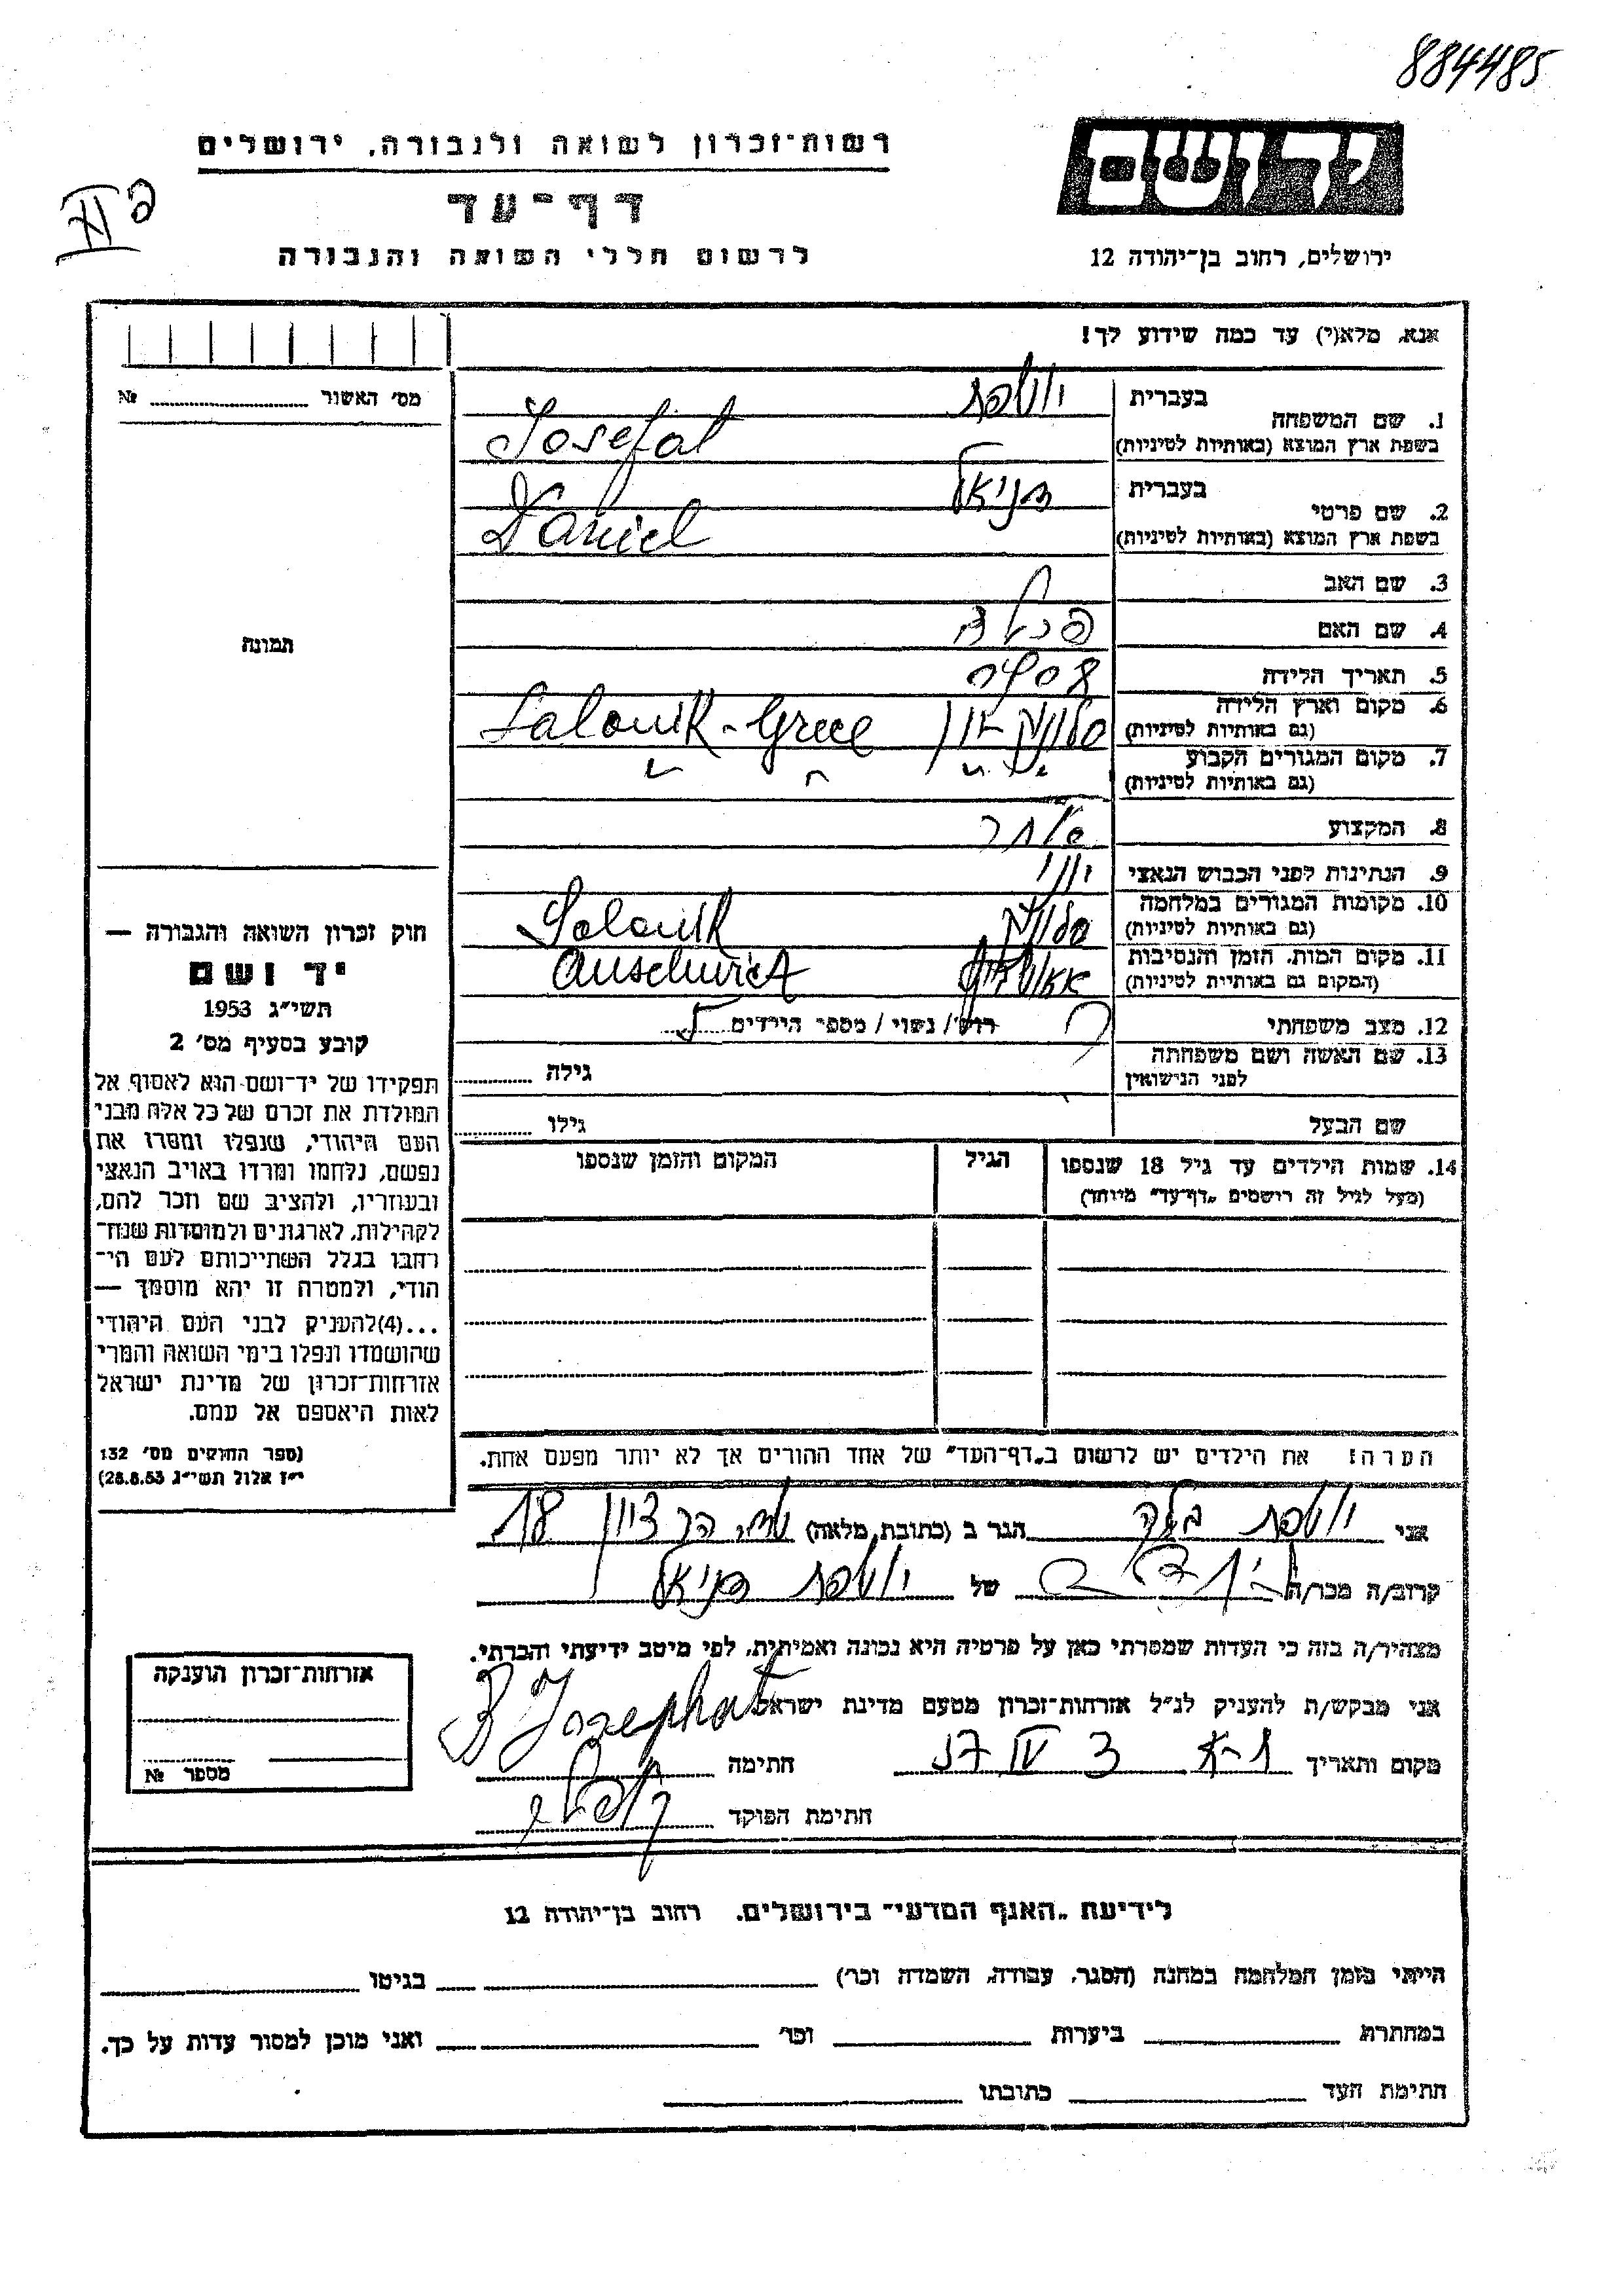 884485
רשות־זכרון לשואה ולגבורה, ירושלים
דף־עד
לרשום חללי השואה והגבורה
יד ושם
ירושלים, רחוב בן־יהודה 12
אנא, מלא(י) עד כמה שידוע לך!
מס׳ האשור № 
1. שם המשפחה
בעברית יוספת
בשפת ארץ המוצא (באותיות לטיניות) Josefat
2. שם פרטי
בעברית דניאל
בשפת ארץ המוצא (באותיות לטיניות) Daniel
3. שם האב
4. שם האם
5. תאריך הלידה
6. מקום וארץ הלידה
(גם באותיות לטיניות) סלוניק יוון Salonik - Grece
7. מקום המגורים הקבוע
(גם באותיות לטיניות)
8. המקצוע סוחר
9. הנתינות לפני הכבוש הנאצי יווני
10. מקומות המגורים במלחמה
(גם באותיות לטיניות) סלוניק Salonik
11. מקום המות, הזמן והנסיבות
(המקום גם באותיות לטיניות) אאושוויץ Auschwict
12. מצב משפחתי רווק / נשוי / מספר הילדים
13. שם האשה ושם משפחתה
לפני הנישואין גילה
שם הבעל גילו
14. שמות הילדים עד גיל 18 שנספו
(מעל לגיל זה רושמים „דף־עד״ מיוחד)
הגיל
המקום והזמן שנספו
תמונה
חוק זכרון השואה והגבורה —
יד ושם
תשי״ג 1953
קובע בסעיף מס׳ 2
תפקידו של יד־ושם הוא לאסוף אל
המולדת את זכרם של כל אלה מבני
העם היהודי, שנפלו ומסרו את
נפשם, נלחמו ומרדו באויב הנאצי
ובעוזריו, ולהציב שם וזכר להם,
לקהילות, לארגונים ולמוסדות שנח־
רבו בגלל השתייכותם לעם הי־
הודי, ולמטרה זו יהא מוסמך —
...(4)להעניק לבני העם היהודי
שהושמדו ונפלו בימי השואה והמרי
אזרחות־זכרון של מדינת ישראל
לאות היאספם אל עמם.
(ספר החוקים מס׳ 132
י״ז אלול תשי״ג 28.8.53)
הערה! את הילדים יש לרשום ב„דף־העד״ של אחד ההורים אך לא יותר מפעם אחת.
אני יוספת הגר ב (כתובת מלאה) הר ציון 18
קרוב/ה מכר/ה של יוספת דניאל
מצהיר/ה בזה כי העדות שמסרתי כאן על פרטיה היא נכונה ואמיתית, לפי מיטב ידיעתי והכרתי.
אני מבקש/ת להעניק לנ״ל אזרחות־זכרון מטעם מדינת ישראל
מקום ותאריך ת-א חתימה B Josephat
חתימת הפוקד
אזרחות־זכרון הוענקה
מספר №
לידיעת „האגף המדעי״ בירושלים, רחוב בן־יהודה 12
הייתי בזמן המלחמה במחנה (הסגר, עבודה, השמדה וכר׳) בגיטו
במחתרת ביערות וכר׳ ואני מוכן למסור עדות על כך.
חתימת העד כתובתו